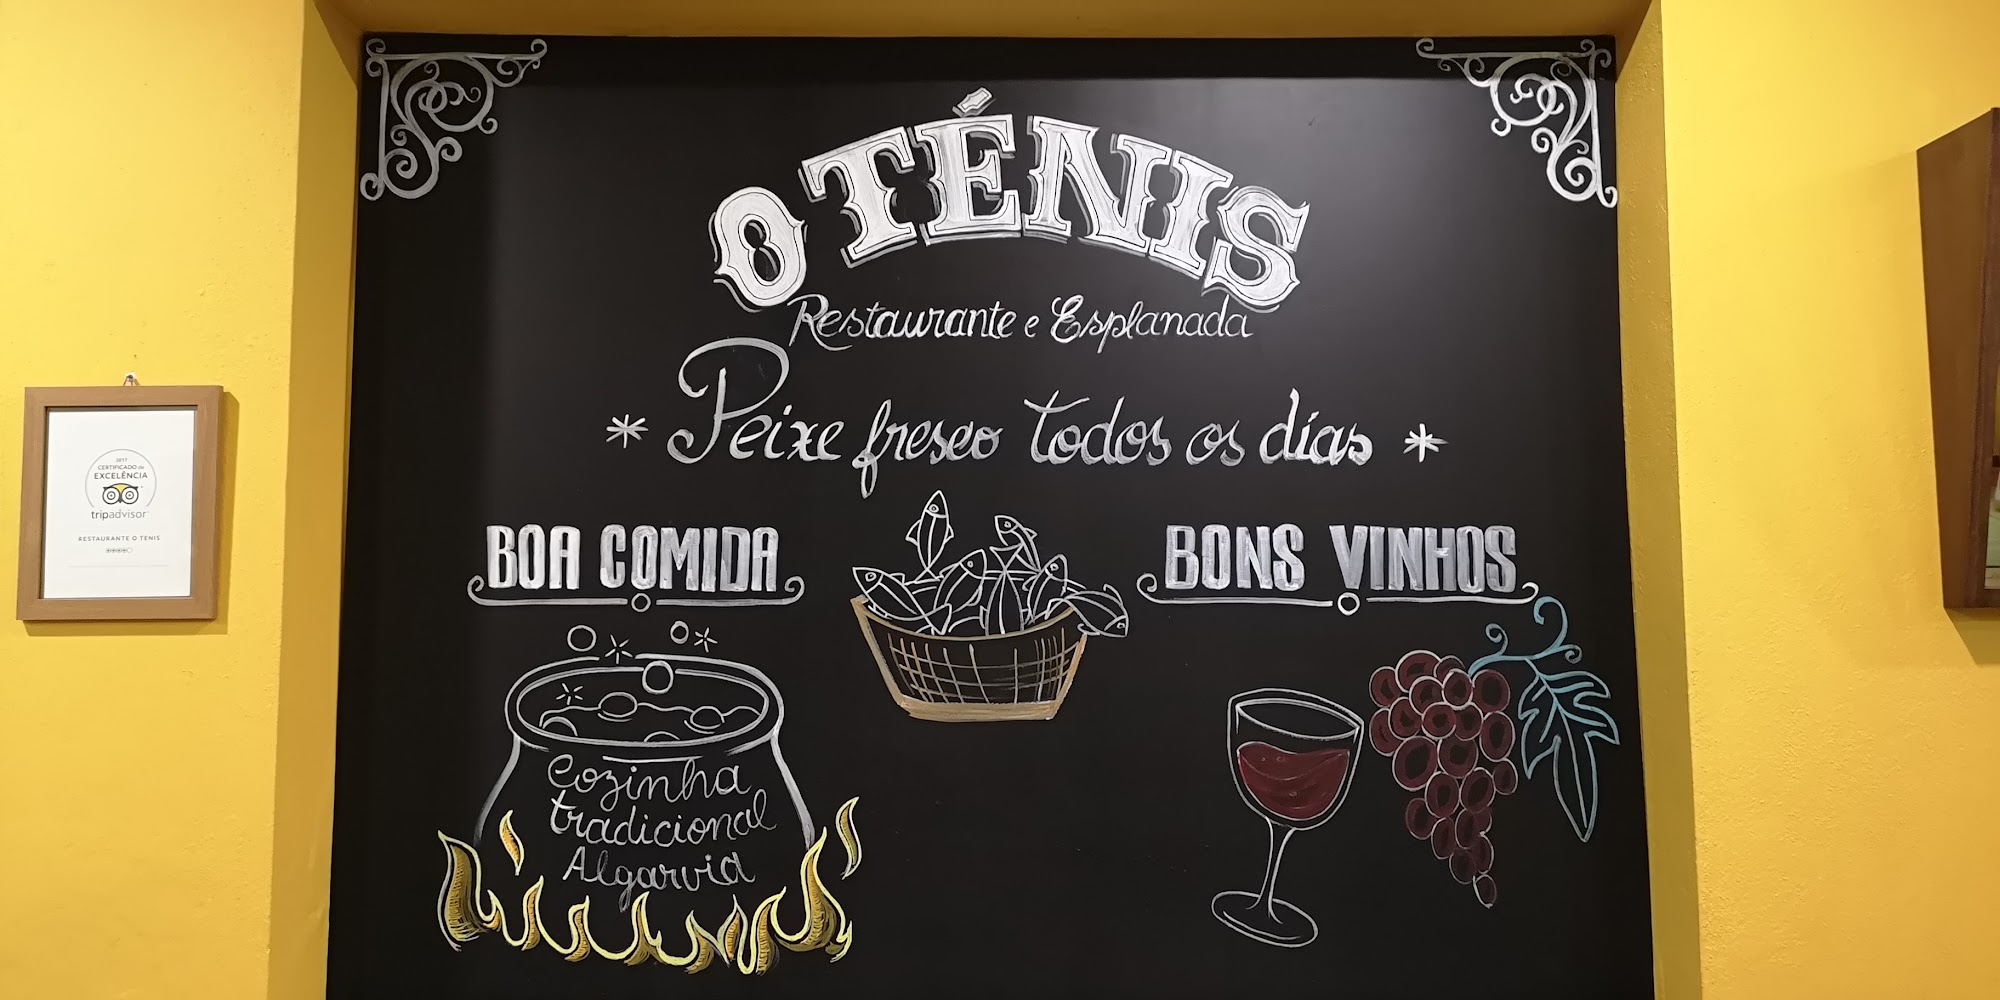 O TÉNIS
Restaurante e Esplanada
* Peixe fresco todos os dias *
BOA COMIDA
BONS VINHOS
Cozinha
tradicional
Algarvia
2017
CERTIFICADO de
EXCELÊNCIA
tripadvisor
RESTAURANTE O TENIS